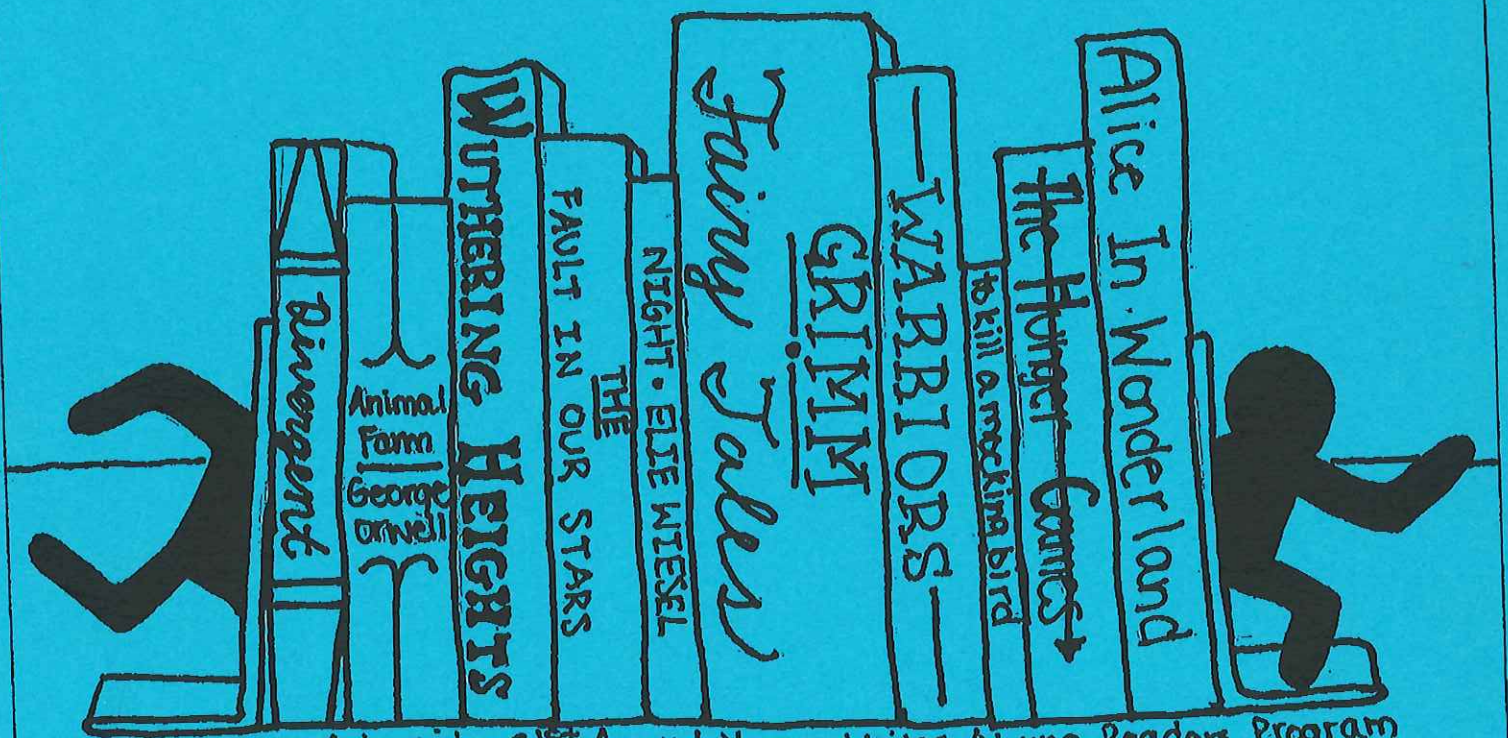 Divergent
Animal
Farm
George
Orwell
WUTHERING HEIGHTS
THE
FAULT IN OUR STARS
NIGHT • ELIE WIESEL
Fairy Tales
GRIMM
—WARRIORS—
to kill a mockingbird
The Hunger Games
Alice In Wonderland
21st Annual Young Writers Young Readers Program